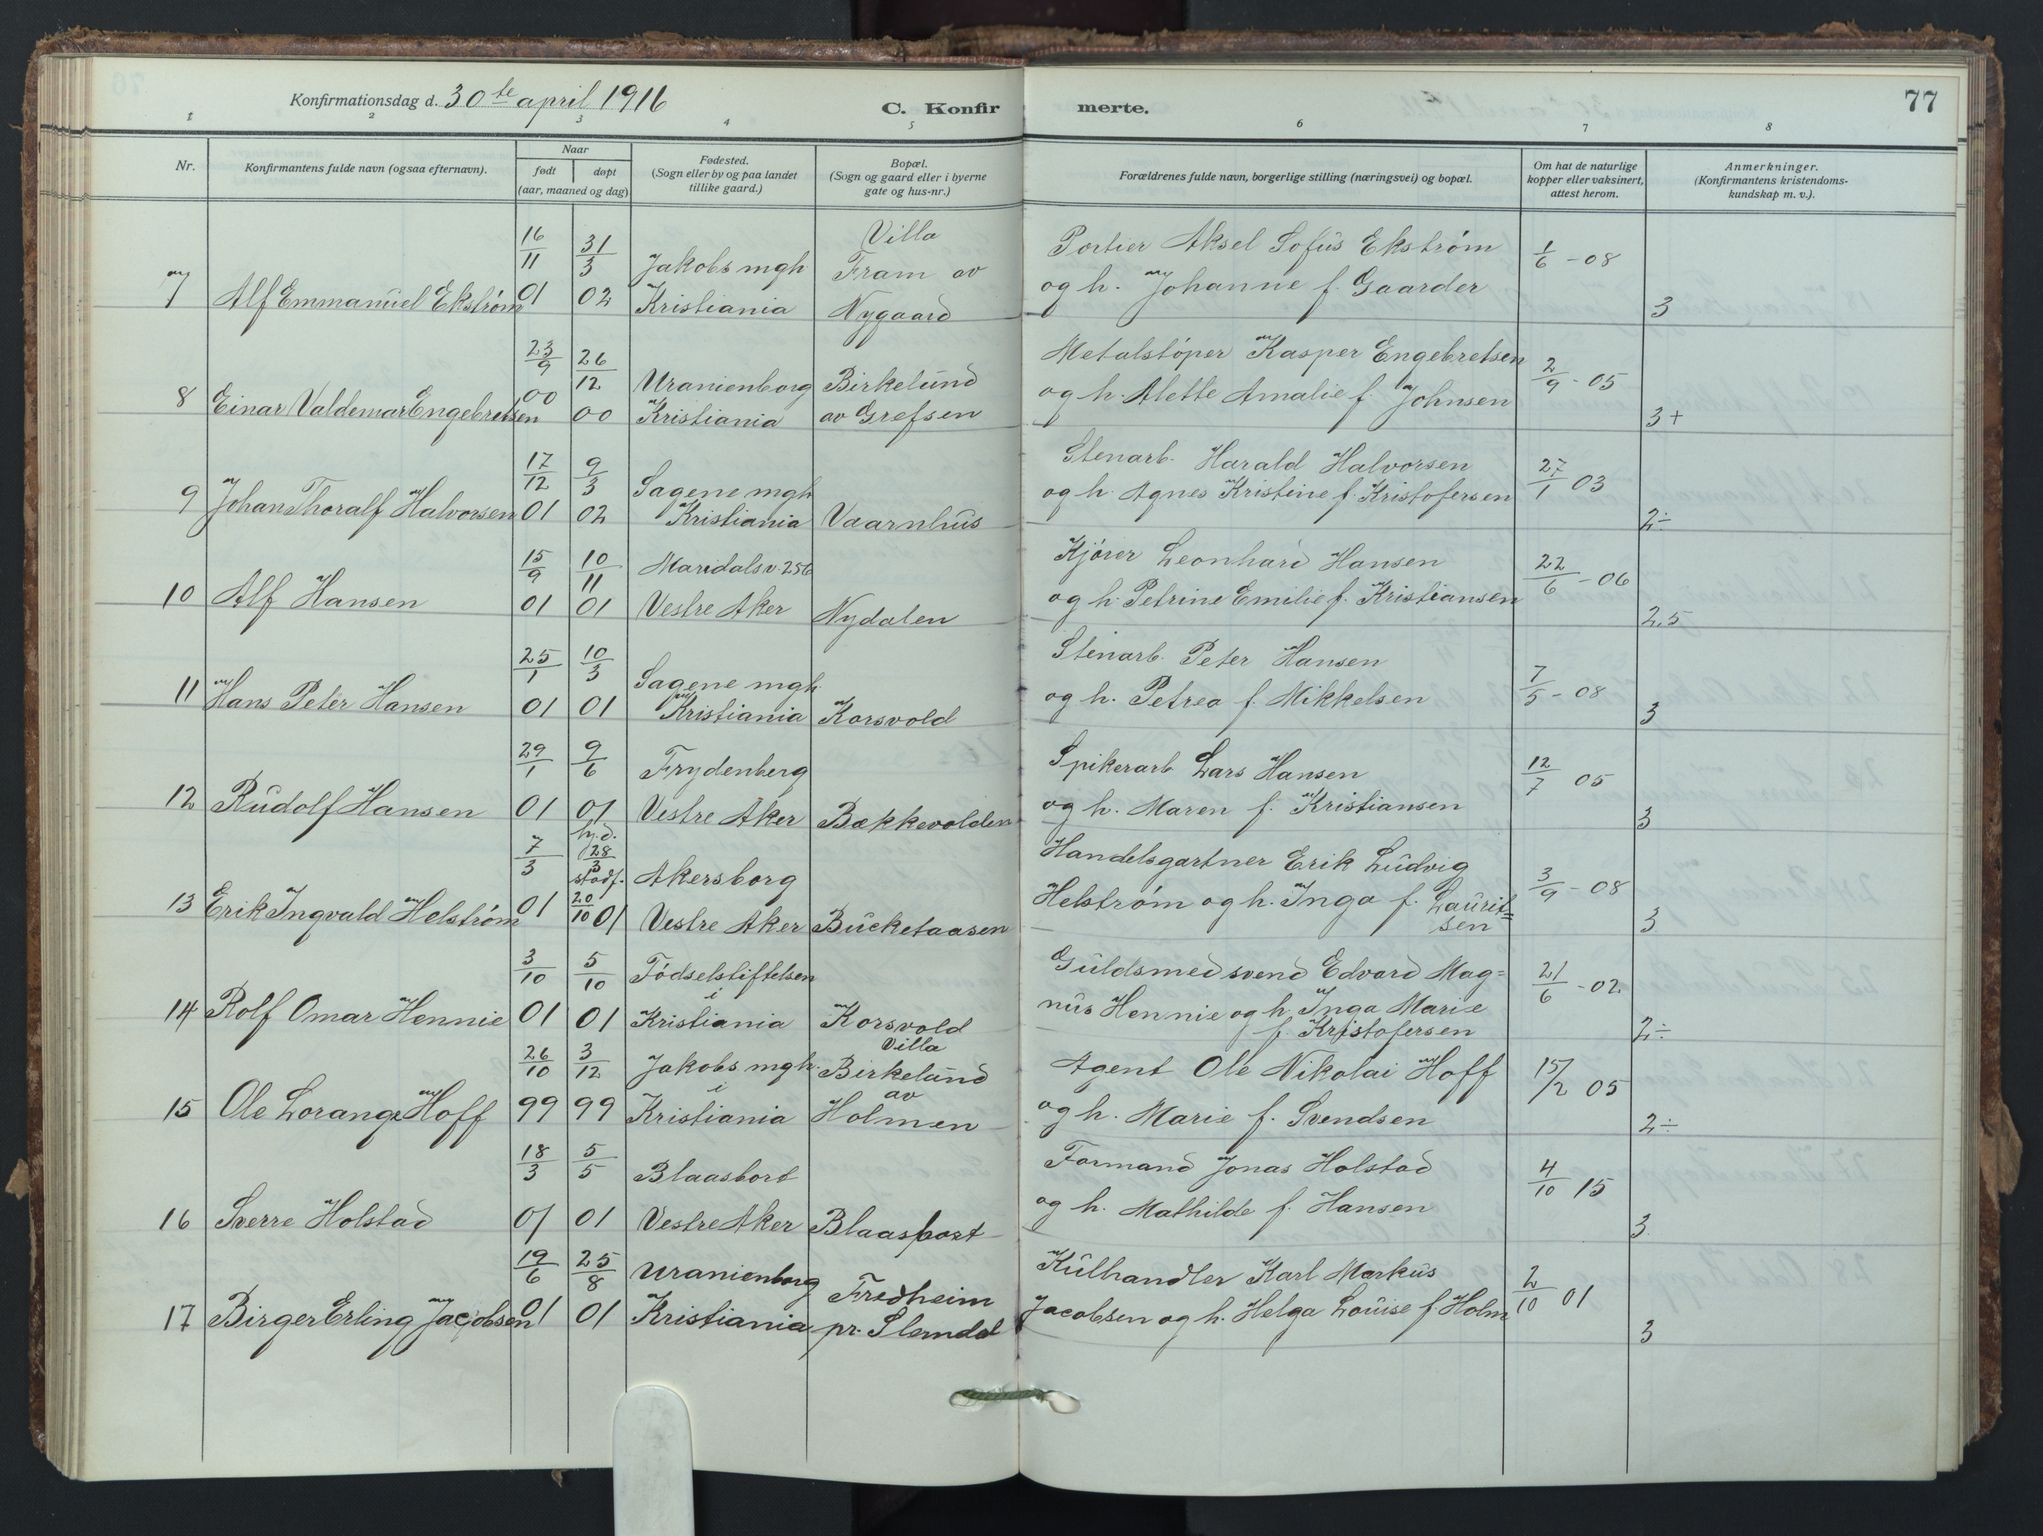 Konfirmationsdag d. 30te april 1916
C. Konfir merte.
77
1 2 3 4 5 6 7 8
Nr.
Konfirmantens fulde navn (ogsaa efternavn).
Naar
født
døpt
(aar, maaned og dag)
Fødested.
(Sogn eller by og paa landet
tillike gaard.)
Bopæl.
(Sogn og gaard eller i byerne
gate og hus-nr.)
Forældrenes fulde navn, borgerlige stilling (næringsvei) og bopæl.
Om hat de naturlige
kopper eller vaksinert,
attest herom.
Anmerkninger.
(Konfirmantens kristendoms-
kundskap m. v.).
7 Alf Emmanuel Ekstrøm
16/11 01
31/3 02
Jakobs mgh
Kristiania
Villa
Fram av
Nygaard
Portier Aksel Sofus Ekstrøm
og h. Johanne f. Gaarder
1/6 - 08
3
8 Einar Valdemar Engebretsen
23/9 00
26/12 00
Uranienborg
Kristiania
Birkelund
av Grefsen
Metalstøper Kasper Engebretsen
og h. Alette Amalie f. Johnsen
2/9 - 05
3+
9 Johan Thoralf Halvorsen
17/12 01
9/3 02
Sagene mgh
Kristiania
Vaarnhus
Stenarb. Harald Halvorsen
og h. Agnes Kristine f. Kristofersen
27/1 03
2÷
10 Alf Hansen
15/9 01
10/11 01
Maridalsv. 256
Vestre Aker
Nydalen
Kjører Leonhard Hansen
og h. Petrine Emilie f. Kristiansen
22/6 - 06
2,5
11 Hans Peter Hansen
25/1 01
10/3 01
Sagene mgh.
Kristiania
Korsvold
Stenarb. Peter Hansen
og h. Petrea f. Mikkelsen
7/5 - 08
3
12 Rudolf Hansen
29/1 01
9/6 01
Frydenberg
Vestre Aker
Bækkevolden
Spikerarb. Lars Hansen
og h. Maren f. Kristiansen
12/7 05
3
13 Erik Ingvald Helstrøm
7/3 01
hj.d.
28/3
stadf.
20/10 01
Akersborg
Vestre Aker
Bücketaasen
Handelsgartner Erik Ludvig
Helstrøm og h. Inga f. Laurit=
sen
3/9 - 08
3
14 Rolf Omar Hennie
3/10 01
5/10 01
Fødselstiftelsen
i
Kristiania
Korsvold
Guldsmedsvend Edvard Mag=
nus Hennie og h. Inga Marie
f. Kristofersen
21/6 - 02
2÷
15 Ole Lorange Hoff
26/10 99
3/12 99
Jakobs mgh.
i
Kristiania
Villa
Birkelund
av
Holmen
Agent Ole Nikolai Hoff
og h. Marie f. Svendsen
15/2 05
2÷
16 Sverre Holstad
18/3 01
5/5 01
Blaasbort
Vestre Aker
Blaasbort
Formand Jonas Holstad
og h. Mathilde f. Hansen
4/10 15
3
17 Birger Erling Jacobsen
19/6 01
25/8 01
Uranienborg
Kristiania
Fredheim
pr. Slemdal
Kulhandler Karl Markus
Jacobsen og h. Helga Louise f. Holm
2/10 01
3